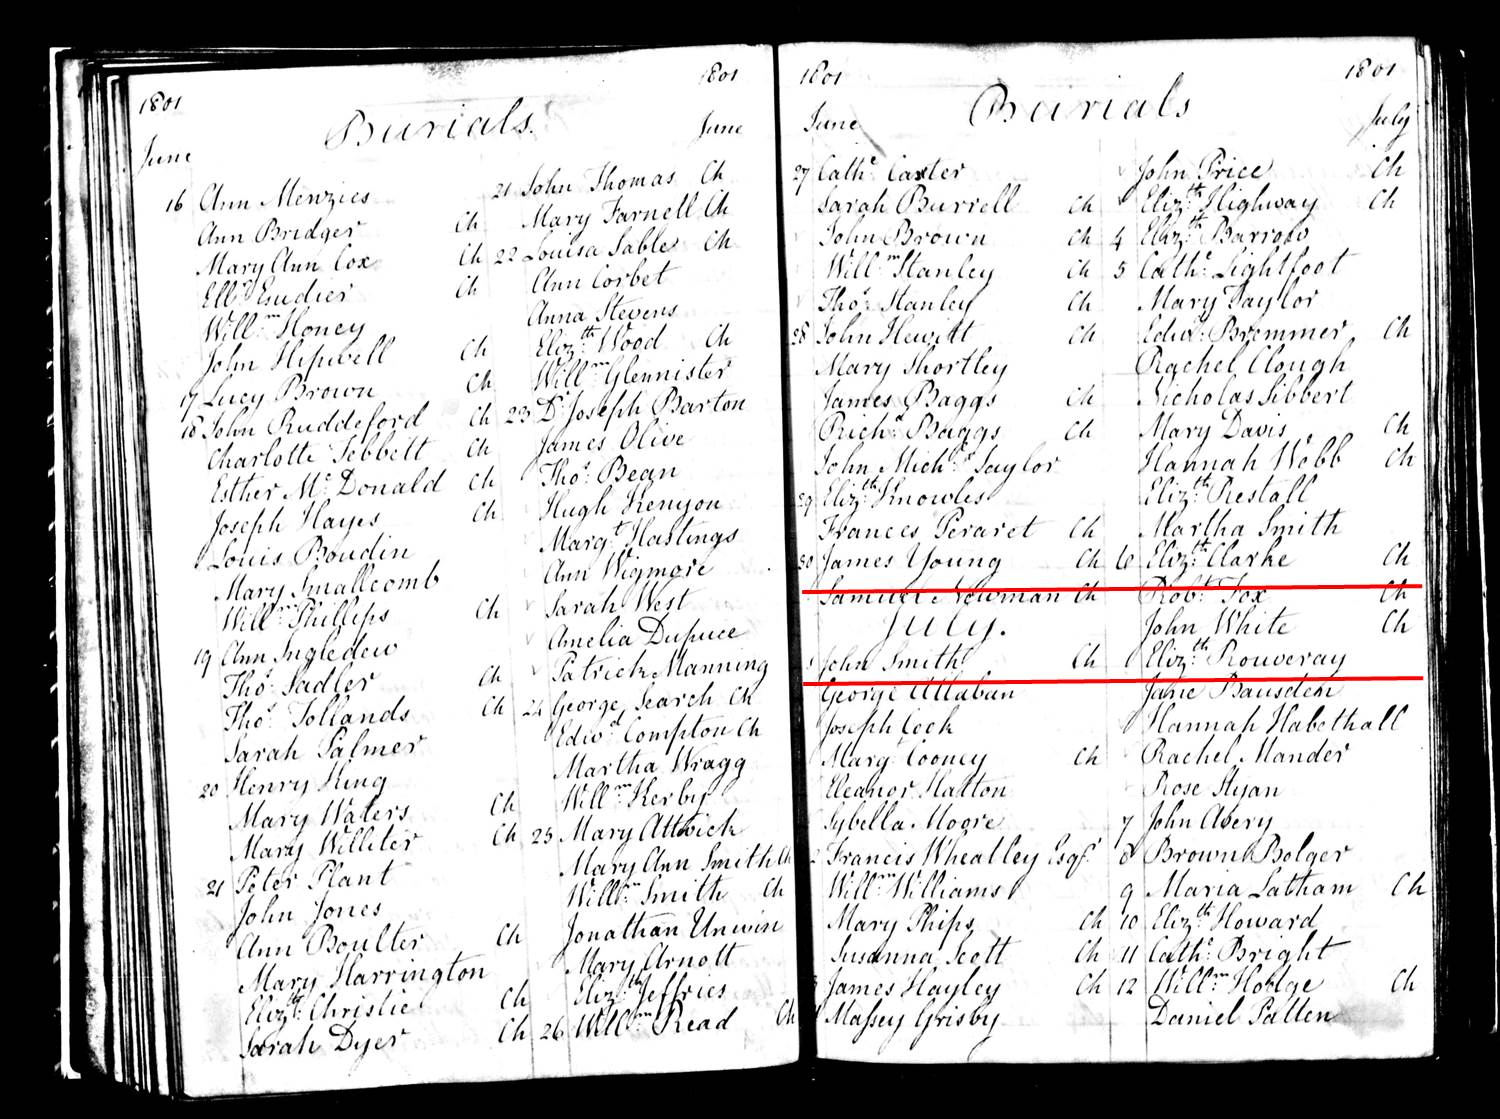 1801
1801
Burials.
June
June
16 Ann Menzies
Ann Bridger Ch
Mary Ann Cox Ch
Ell.n Esudier Ch
Will.m Honey
John Hipwell Ch
17 Lucy Brown Ch
18 John Ruddeford Ch
Charlotte Tebbett Ch
Esther Mc Donald Ch
Joseph Hayes Ch
Louis Boudin
Mary Smallcomb
Will.m Phillips Ch
19 Ann Ingledew
Tho.s Sadler Ch
Tho.s Tollands Ch
Sarah Palmer
20 Henry King
Mary Waters Ch
Mary Williter Ch
21 Peter Plant
John Jones
Ann Boulter Ch
Mary Harrington
Eliz.th Christie Ch
Sarah Dyer Ch
21 John Thomas Ch
Mary Farnell Ch
22 Louisa Sable Ch
Ann Corbet
Anna Stevens
Eliz.th Wood Ch
Will.m Glennister
23 D.r Joseph Barton
James Olive
Tho.s Bean
Hugh Kenyon
Marg.t Hastings
Ann Wigmore
Sarah West
Amelia Dupuce
Patrick Manning
24 George Search Ch
Edw.d Compton Ch
Martha Wragg
Will.m Kerby
25 Mary Attwick
Mary Ann Smith Ch
Will.m Smith Ch
Jonathan Unwin
Mary Arnott
Eliz.th Jeffries
26 Will.m Read Ch
1801
1801
Burials
June
July
27 Cath.e Carter
Sarah Burrell Ch
John Brown Ch
Will.m Stanley Ch
Tho.s Stanley Ch
28 John Hewitt Ch
Mary Shortley
James Baggs Ch
Rich.d Baggs Ch
John Mich.l Taylor
29 Eliz.th Knowles
Frances Peraret Ch
30 James Young Ch
Samuel Newman Ch
July.
1 John Smith Ch
George Allaban
Joseph Cock
Marg.t Cooney Ch
Eleanor Hatton
Sybella Moore
2 Francis Wheatley Esq.r
Will.m Williams
Mary Phips Ch
Susanna Scott Ch
3 James Hayley Ch
Massey Grisby
John Price Ch
Eliz.th Highway Ch
4 Eliz.th Barrow
5 Cath.e Lightfoot
Mary Taylor
Edw.d Bremmer Ch
Rachel Clough
Nicholas Sibbert
Mary Davis Ch
Hannah Webb Ch
Eliz.th Restall
Martha Smith
6 Eliz.th Clarke Ch
Rob.t Fox Ch
John White Ch
Eliz.th Rouveray
Jane Bausden
Hannah Habethall
Rachel Mander
Rose Hyan
7 John Avery
8 Brown Bolger
9 Maria Latham Ch
10 Eliz.th Howard
11 Cath.e Bright
12 Will.m Hodge Ch
Daniel Patten